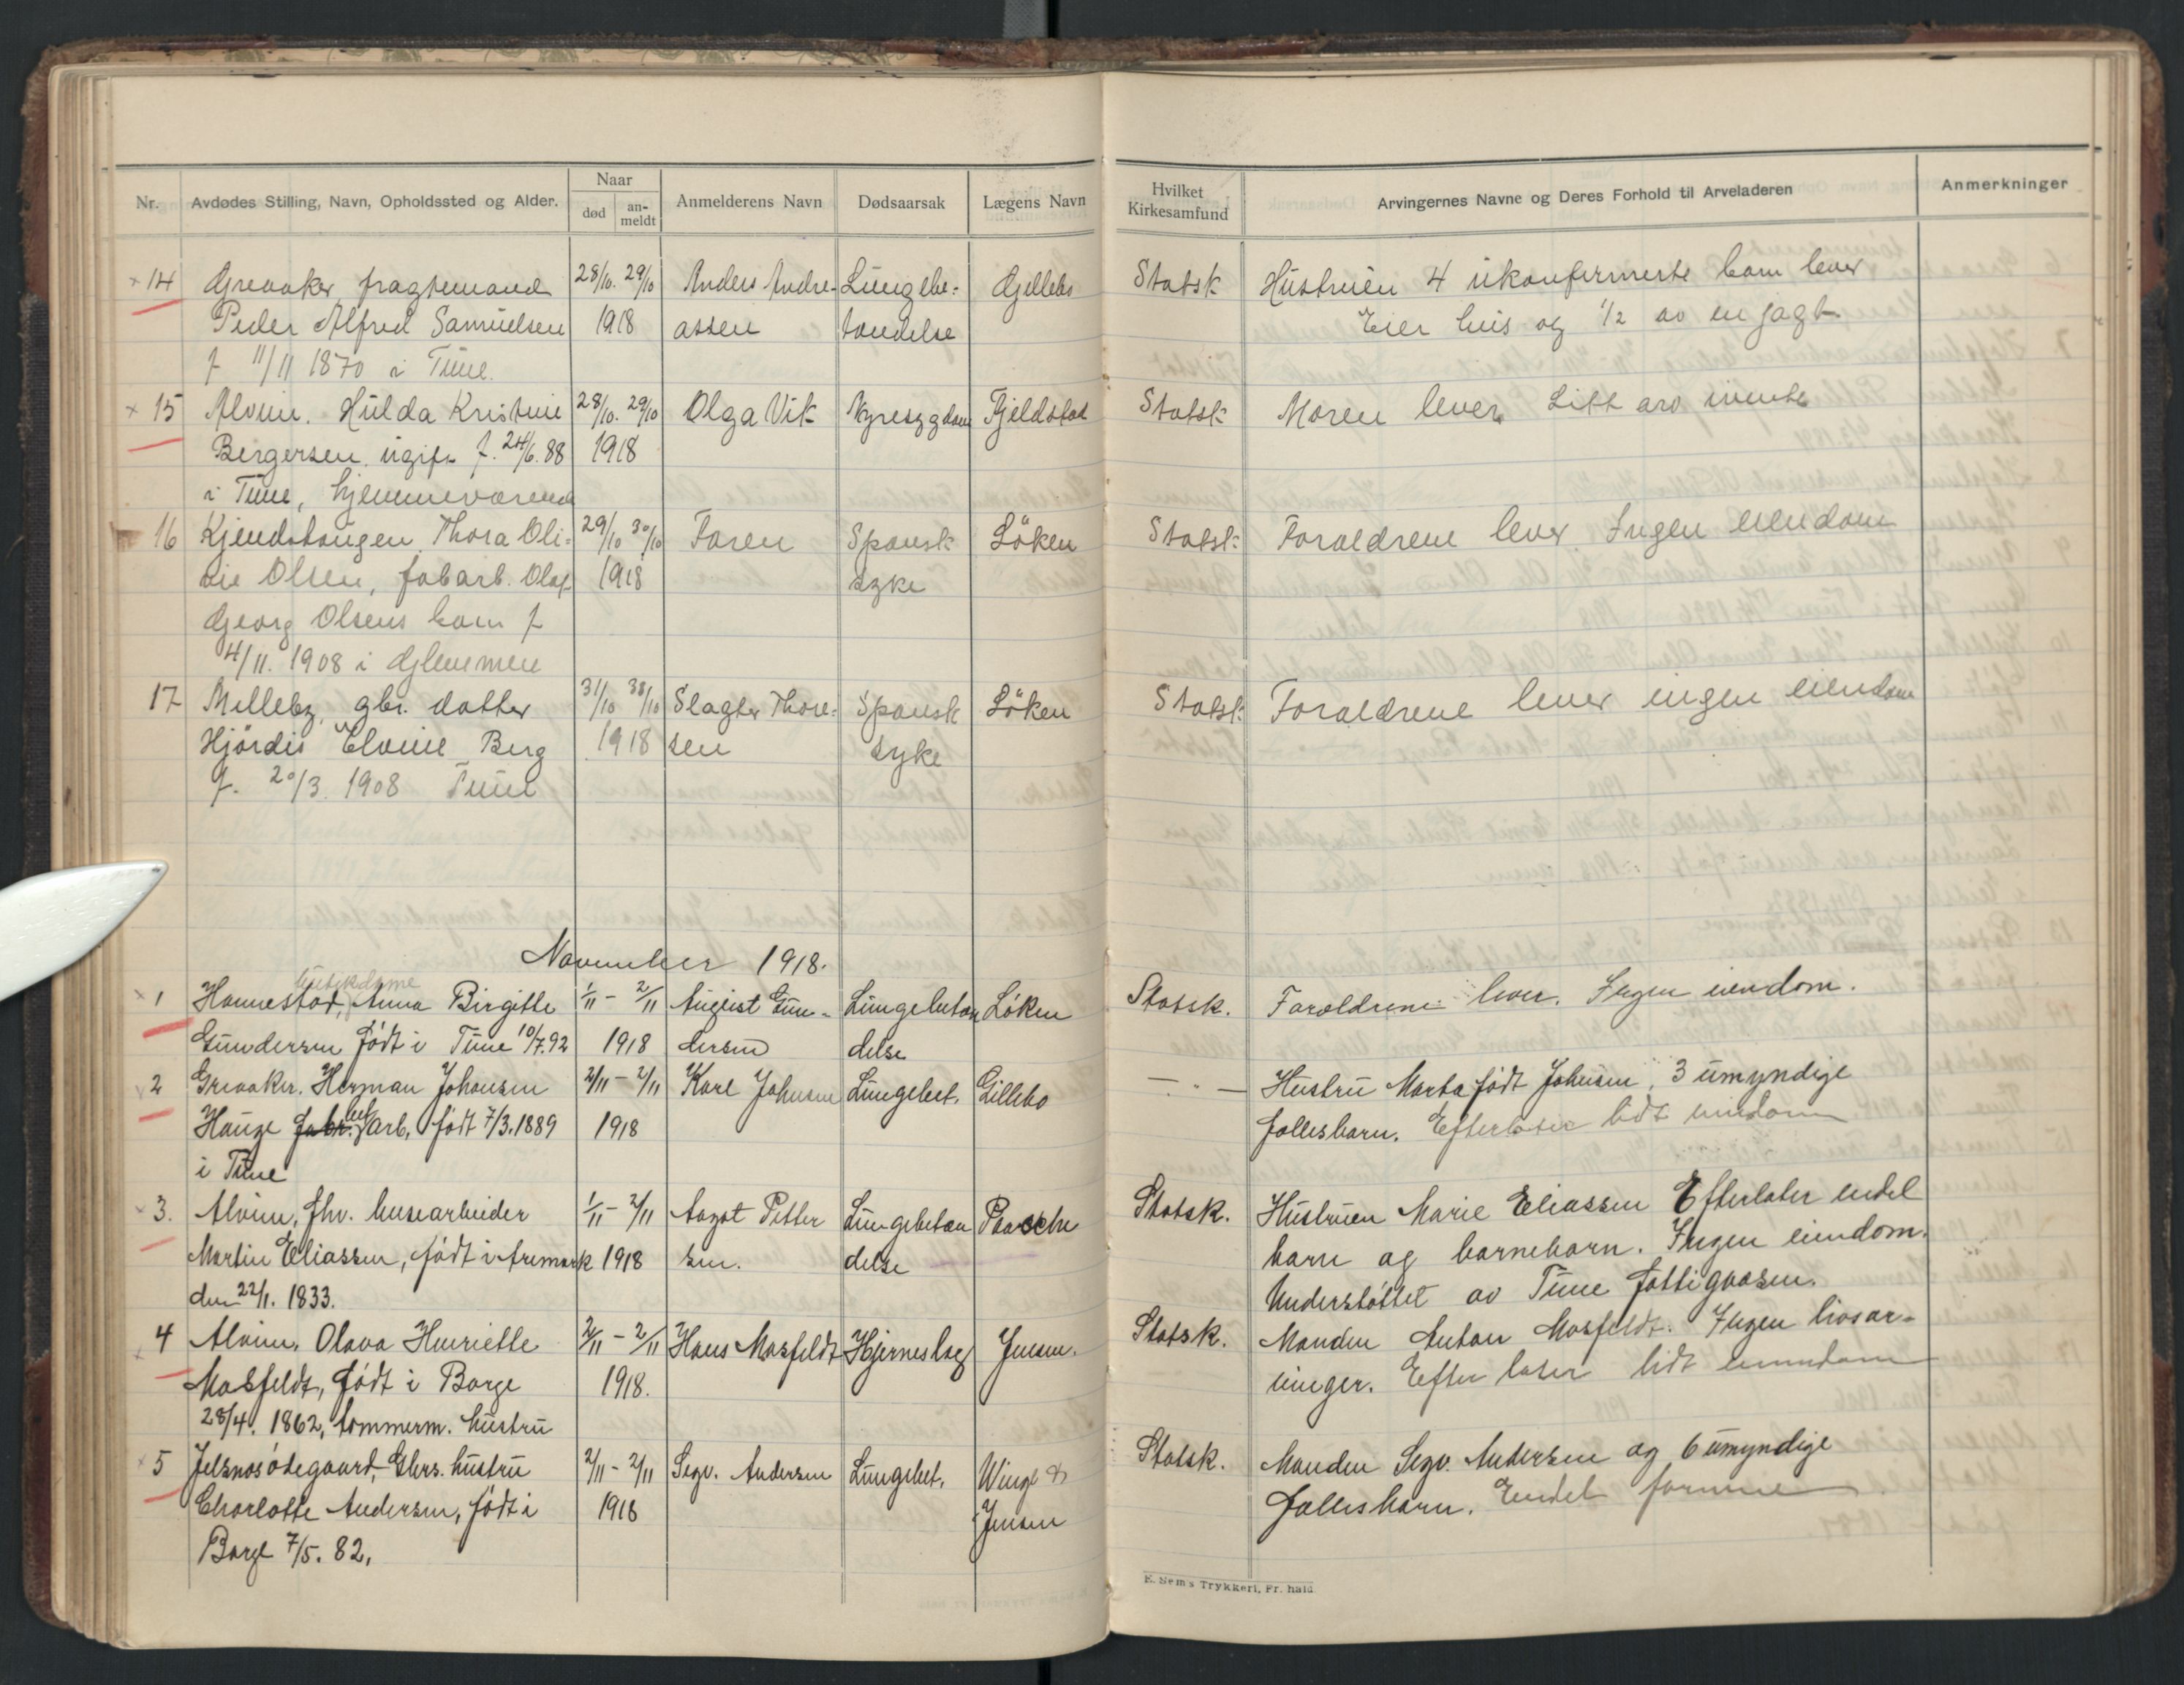 Nr. Avdødes Stilling, Navn, Opholdssted og Alder. Naar død an-meldt Anmelderens Navn Dødsaarsak Lægens Navn Hvilket Kirkesamfund Arvingernes Navne og Deres Forhold til Arveladeren Anmerkninger
14 Greaaker fragtemand 28/10. 29/10 Anders Andre- Lungebe= Gjellebo Statsk Hustruen 4 ukonfirmerte barn lever
Peder Alfred Samuelsen 1918 assen tændelse Eier hus og 1/2 av en jagt
f 11/11 1870 i Tune.
15 Alvim. Hulda Kristine 28/10. 29/10 Olga Vik Nyresygdom Fjeldstad Statsk Moren lever Litt arv ivente
Bergersen ugift f. 24/6. 88 1918
i Tune, hjemmeværende
16 Kjendstangen Thora Oli= 29/10 30/10 Faren Spansk Löken Statsk: Forældrene lever Ingen eiendom
sie Olsen, fabarb. Olaf 1918 syke
Georg Olsens barn f
4/11. 1908 i Glemmen
17 Melleby gbr. datter 31/10 31/10 Slagter Thore= Spansk Löken Statsk: Forældrene lever ingen eiendom
Hjördis Elvine Berg 1918 sen syke
f. 20/3. 1908 Tune
November 1918.
butikdame
1 Hannestad, Anna Birgitte 1/11 - 2/11 August Gun- Lungebetæn Løken Statsk. Forældrene lever. Ingen eiendom.
Gundersen født i Tune 10/7.92 1918 dersen delse
2 Greaaker. Herman Johansen 2/11 - 2/11 Karl Johnsen Lungebet. Gillebo — " — Hustru Marta født Johnsen, 3 umyndige
Hauge Fabr. Arb, født 7/3.1889 1918 fællesbarn. Efterlater lidt eiendom
i Tune
3. Alvim, fhv. brusearbeider 1/11 - 2/11 Aagot Petter Lungebetæn Paasche Statsk. Hustruen Marie Eliassen Efterlater endel
Martin Eliassen, født i Aremark 1918 sen. delse barn og barnebarn. Ingen eiendom.
den 22/1. 1833. Understøttet av Tune Fattigvæsen.
4 Alvim. Olava Henriette 2/11 - 2/11 Hans Mosfeldt Hjerneslag Jensen. Statsk. Manden Anton Mosfeldt. Ingen livsar-
Mosfeldt, født i Borge 1918. vinger. Efterlaser lidt eiendom
28/4. 1862, tømmerm. hustru
5 Jelsnesødegaard, Gbrs. hustru 2/11 - 2/11 Sigv. Andersen Lungebet. Winge & Statsk. Manden Sigv. Andersen og 6 umyndige
Charlotte Andersen, født i 1918 Jensen Fællesbarn. Endel formue
Borge 7/5. 82,
E. Sem's Trykkeri, Fr.hald